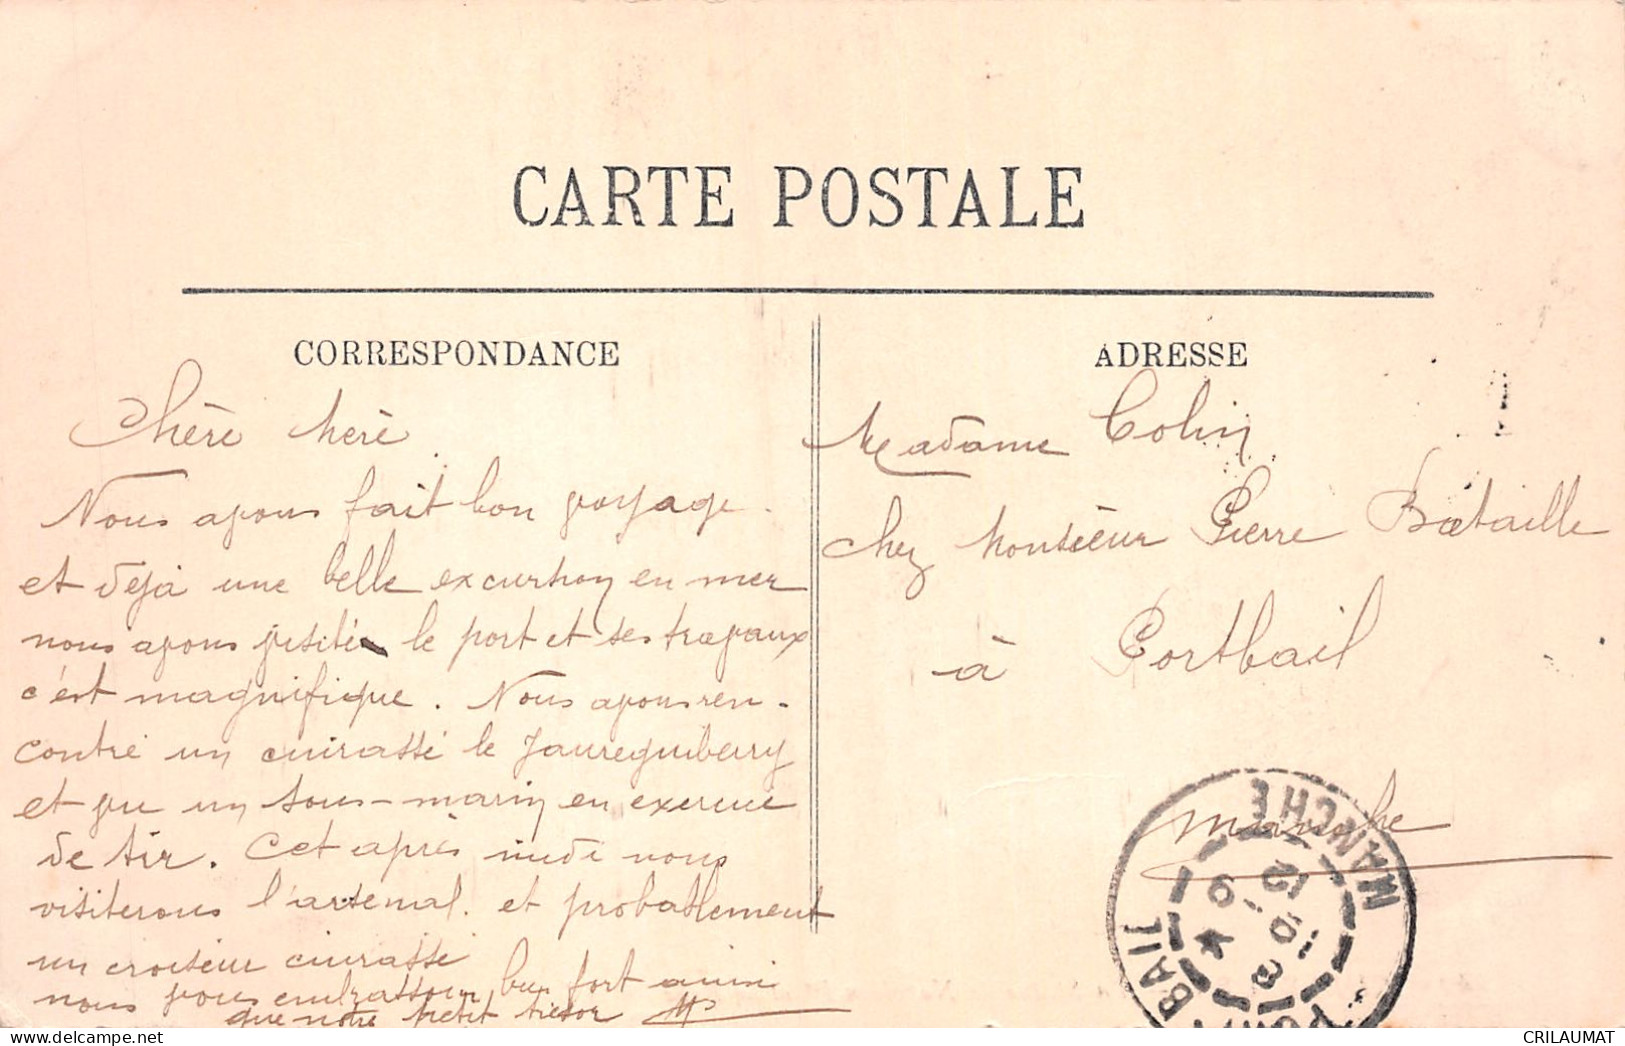 CARTE POSTALE
CORRESPONDANCE
Chère Mère
Nous avons fait bon voyage.
et déjà une belle excursion en mer
nous avons visité le port et ses travaux
c'est magnifique. Nous avons ren-
contré un cuirassé le Jaureguiberry
et vu un sous-marin en exercice
de tir. Cet après midi nous
visiterons l'arsenal. et probablement
un croiseur cuirassé
nous vous embrassons bien fort ainsi
que notre petit trésor
ADRESSE
Madame Colin
chez Monsieur Pierre Bataille
à Portbail
Manche
PORT-BAIL
MANCHE
CRILAUMAT